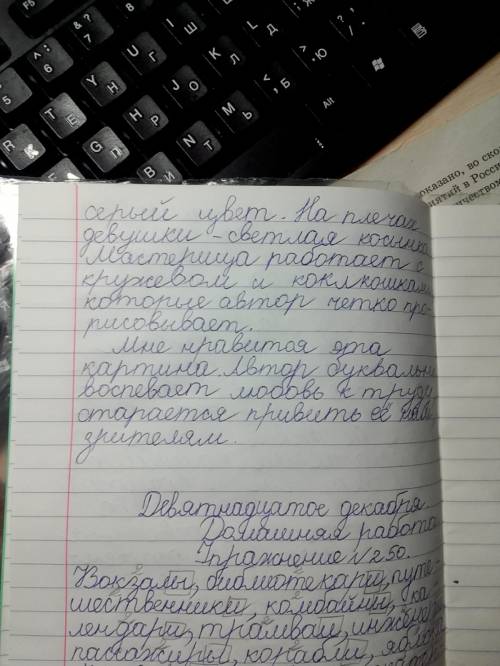 F5
5
6
7
8
9
0
?
R
T
Y
U
I
Е
Н
Г
Ш
G
H
J
K
L
П
Р
О
Л
Д
B
N
M
И
Т
Ь
Б
Ю
Alt
оказано, во
в России
серый цвет. На плечах
девушки – светлая косынка
Мастерица работает с
кружевом и коклюшками
которые автор четко про-
рисовывает.
Мне нравится эта
картина. Автор буквально
воспевает любовь к труду
старается привить её
зрителям.
Девятнадцатое декабря.
Домашняя работа
Упражнение №250.
Вокзалы, библиотекари, путе-
шественники, комбайны, ка
лендари, трамваи,
пассажиры, корабли,